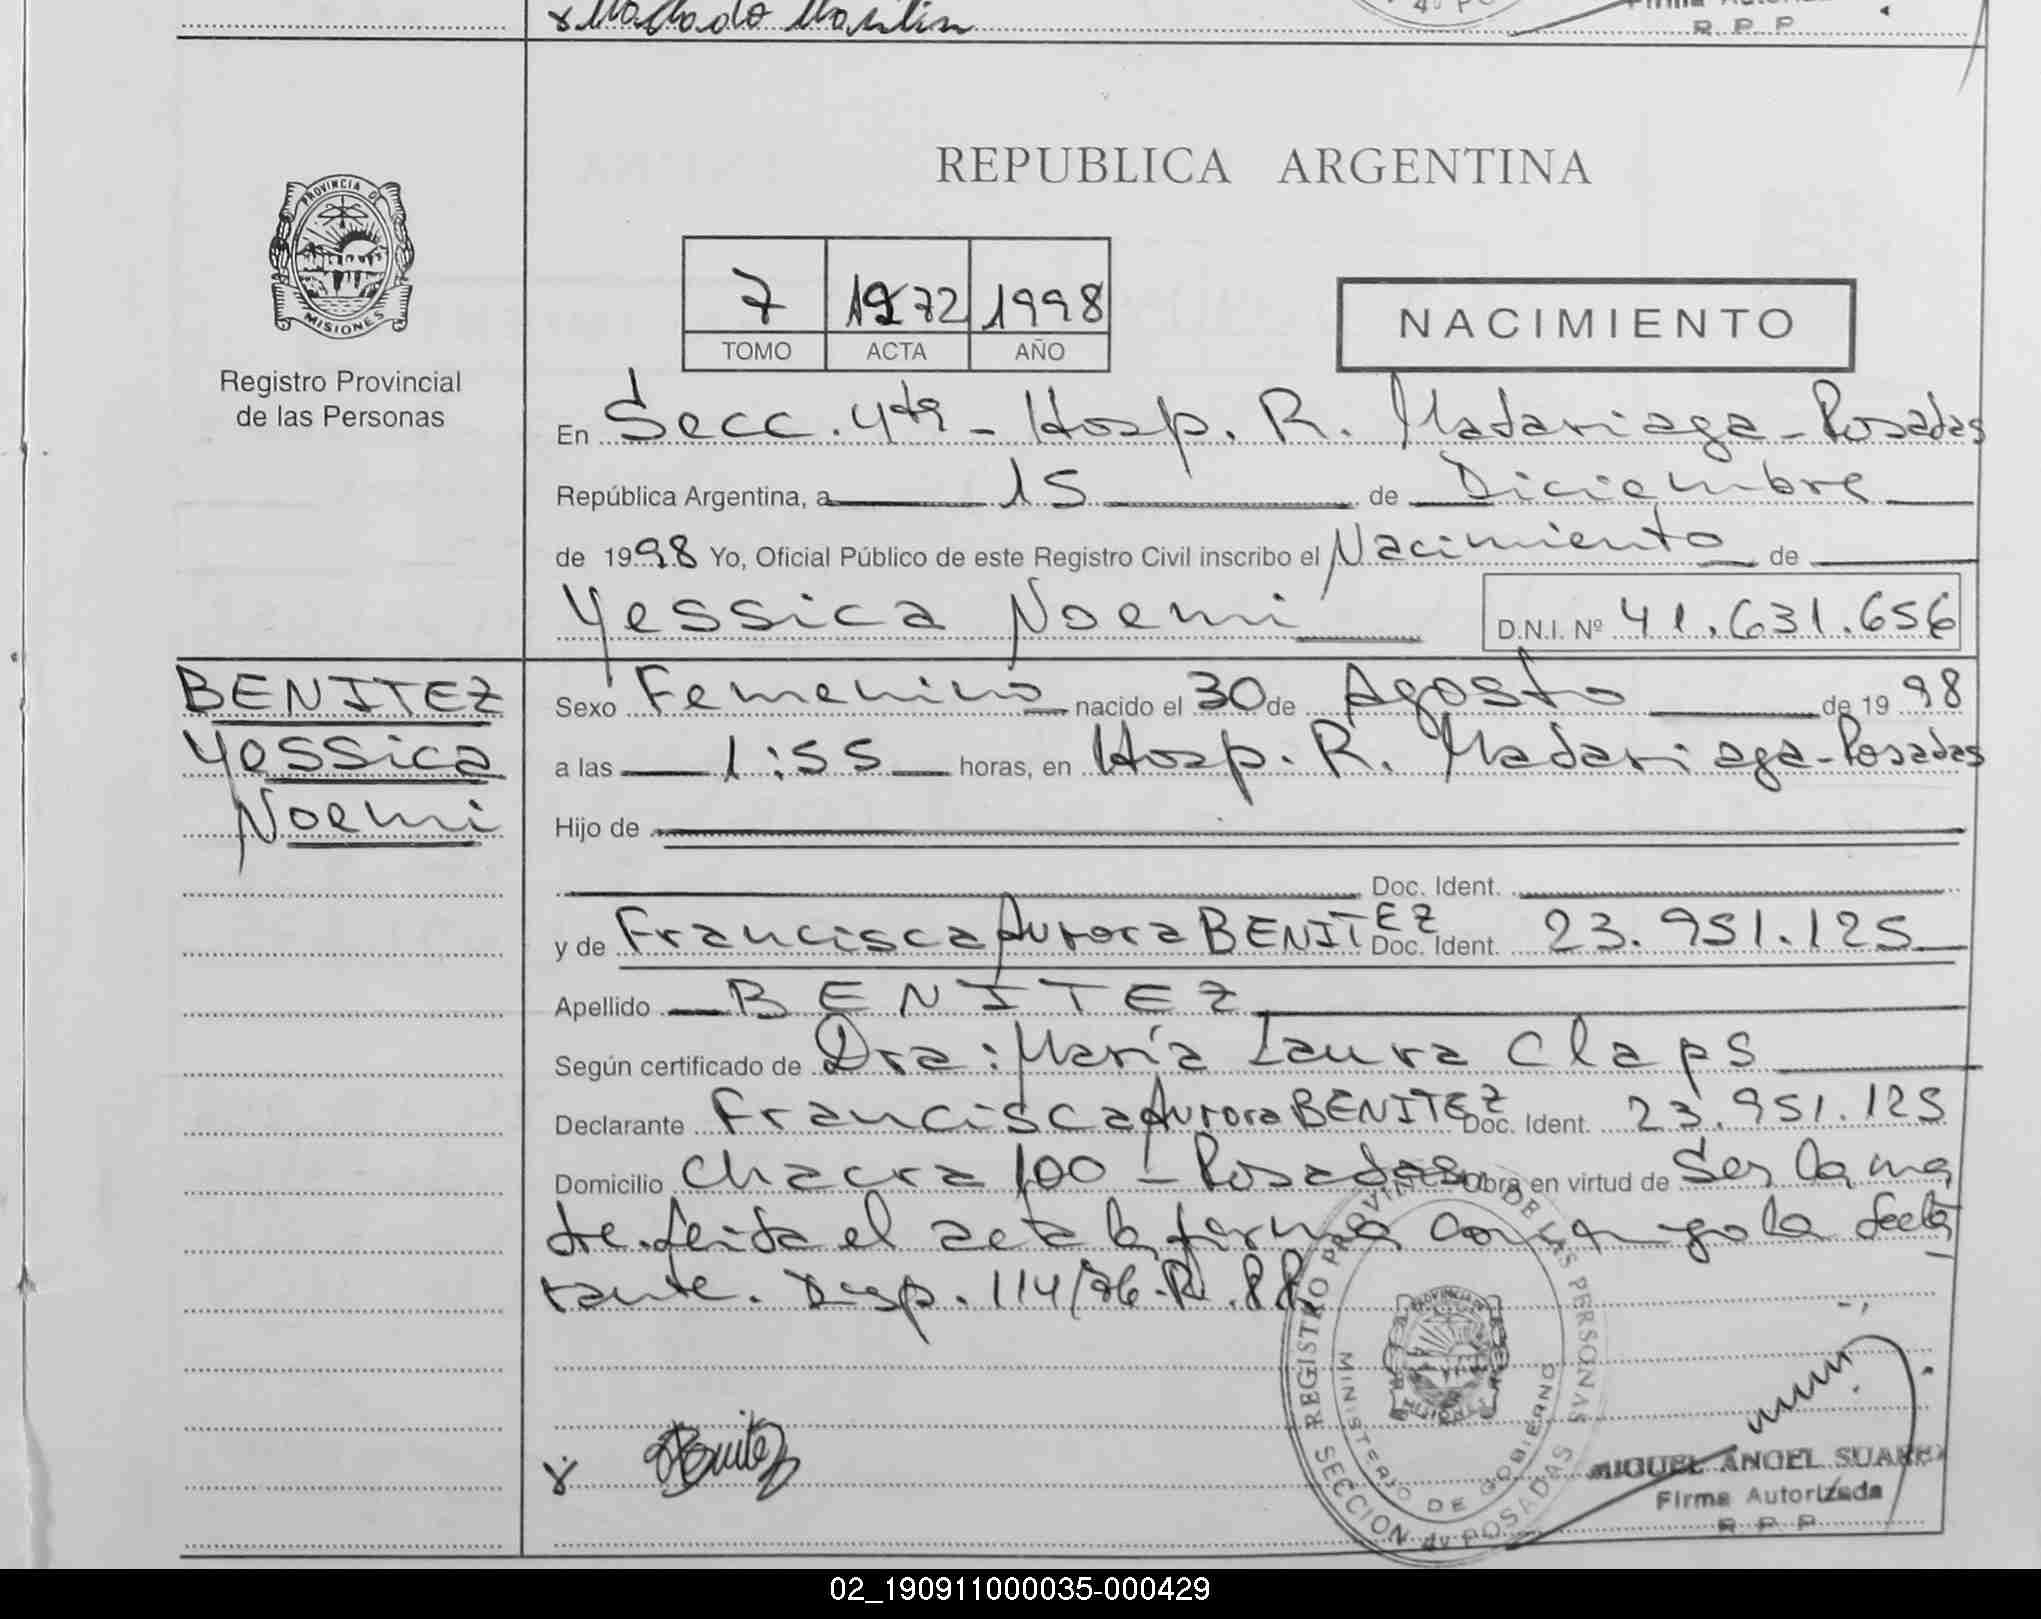 x Machado Martin
R. P. P.
PROVINCIA DE
MISIONES
Registro Provincial
de las Personas
REPUBLICA ARGENTINA
7 1272 1998
TOMO ACTA AÑO
NACIMIENTO
En Secc. 4ta - Hosp. R. Madariaga - Posadas
República Argentina, a 15 de Diciembre
de 1998 Yo, Oficial Público de este Registro Civil inscribo el Nacimiento de
Yessica Noemi D.N.I. Nº 41.631.656
BENITEZ
Yessica
Noemi
Sexo Femenino nacido el 30 de Agosto de 1998
a las 1:55 horas, en Hosp. R. Madariaga - Posadas
Hijo de
Doc. Ident.
y de Francisca Aurora BENITEZ Doc. Ident. 23.951.125
Apellido BENITEZ
Según certificado de Dra: María Laura Claps
Declarante Francisca Aurora BENITEZ Doc. Ident. 23.951.125
Domicilio Chacra 100 - Posadas Obra en virtud de Ser la ma
dre. leida el acta la firma conmigo la decla
rante. Disp. 114/96. R. 88.
x Benitez
REGISTRO PROVINCIAL DE LAS PERSONAS
MINISTERIO DE GOBIERNO
SECCION 4ta POSADAS
MIGUEL ANGEL SUAREZ
Firma Autorizada
R. P. P.
02_190911000035-000429